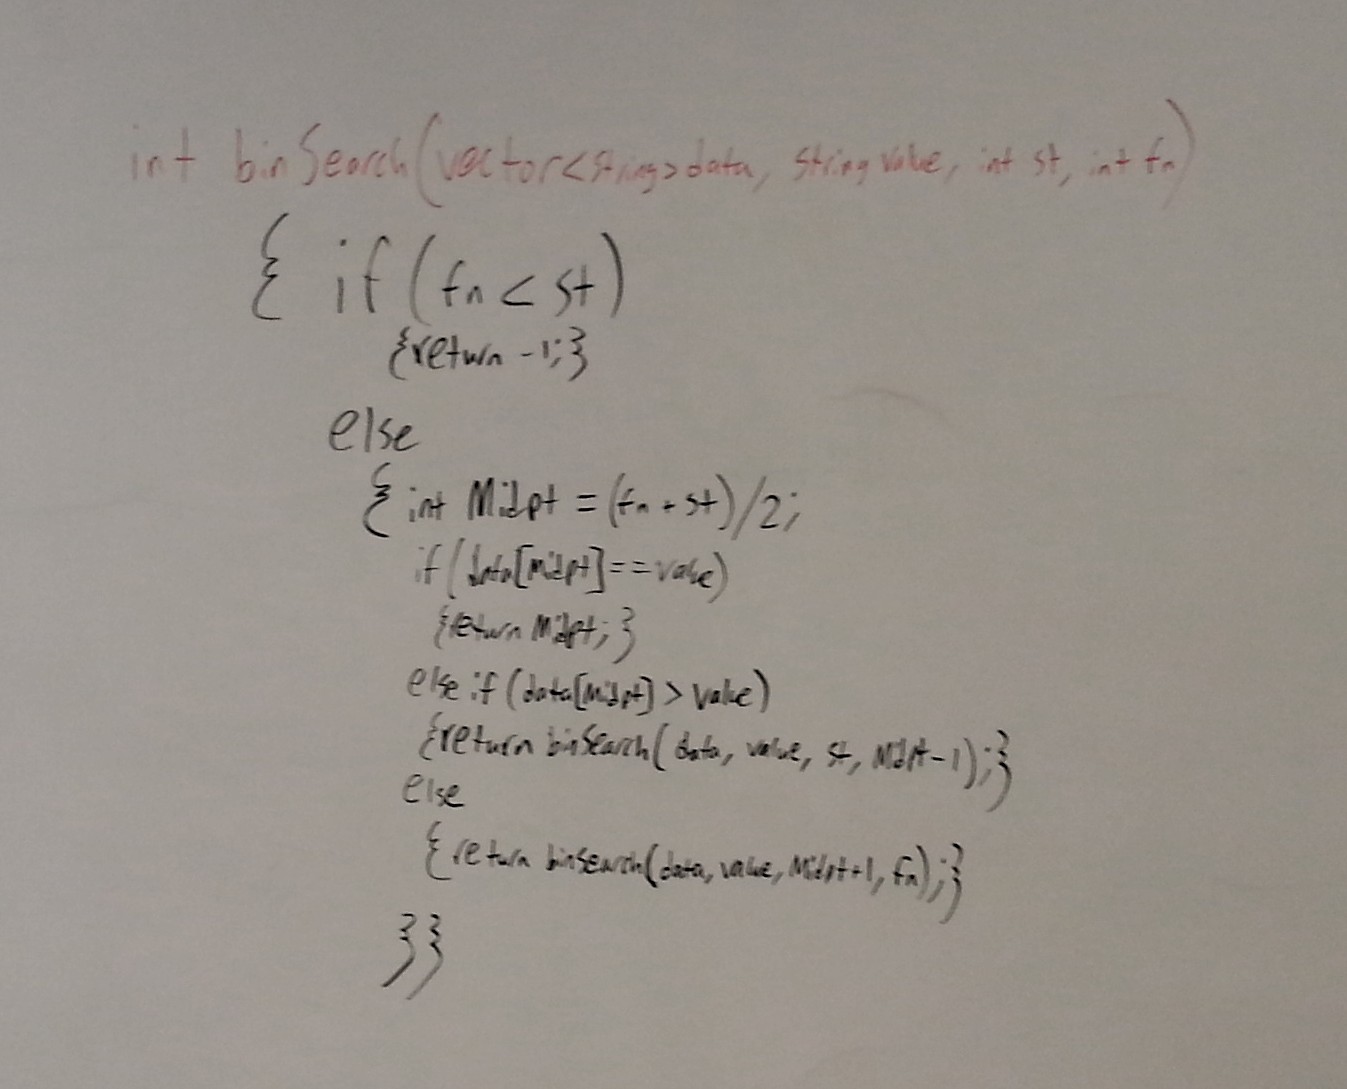 int binSearch(vector<string>data, string value, int st, int fn)
{ if (fn < st)
{return -1;}
else
{ int Midpt = (fn + st)/2;
if (data[Midpt]==value)
{return Midpt; }
else if (data[Midpt] > value)
{return binSearch( data, value, st, Midpt-1);}
else
{return binSearch(data, value, Midpt+1, fn);}
}}